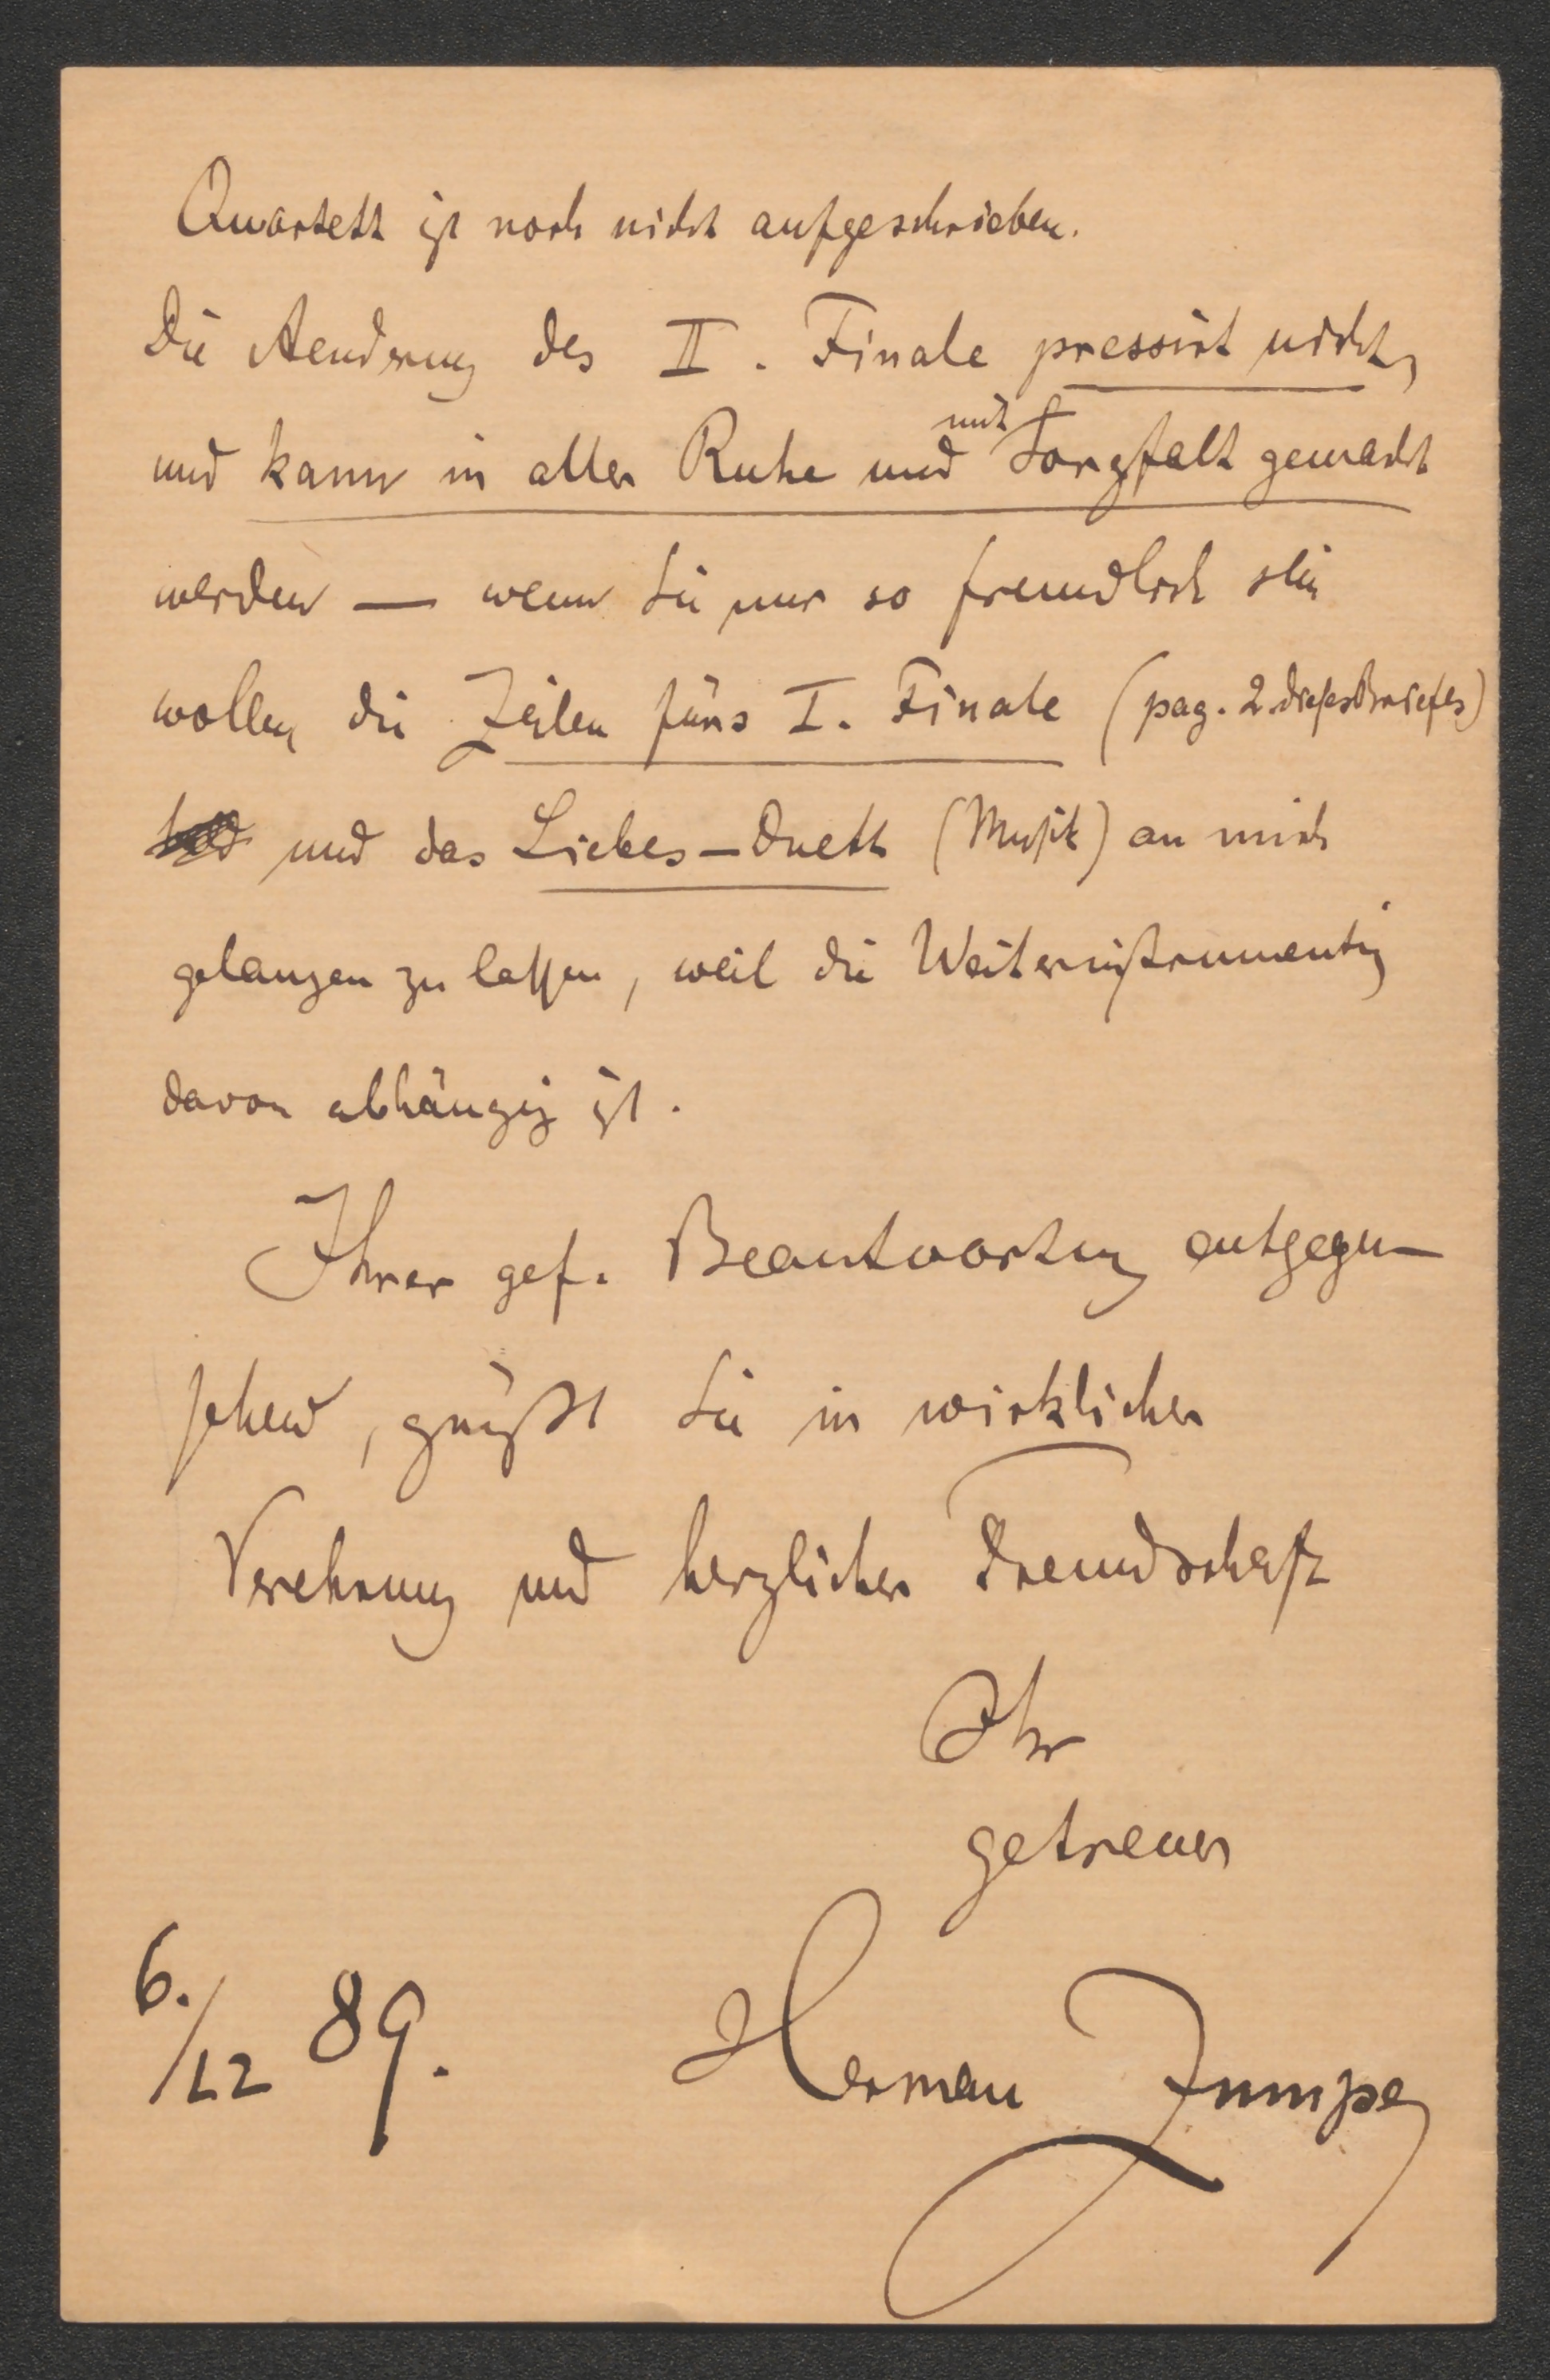 Quartett ist noch nicht aufgeschrieben.
Die Aenderung des II. Finale pressirt nicht,
und kann in aller Ruhe und mit Sorgfalt gemacht
werden — wenn Sie nur so freundlich sein
wollen, die Zeilen fürs I. Finale (pag. 2 dieses Briefes)
und das Liebes-Duett (Musik) an mich
gelangen zu lassen, weil die Weiterinstrumentig
davon abhängig ist.
Ihrer gef. Beantwortung entgegen-
sehend, grüßt Sie in wirklicher
Verehrung und herzlicher Freundschaft
Ihr
getreuer
6./12 89. Herman Zumpe